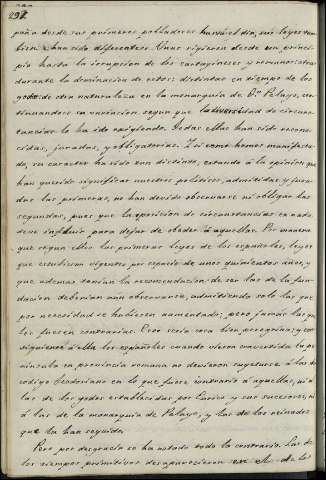 292
paña desde sus primeros pobladores hasta el dia, sus leyes tam
bien han sido diferentes. Unas rigieron desde un princi-
pio hasta la irrupcion de los cartagineses y romanos: otras
durante la dominacion de estos: distintas en tiempo de los
godos: de otra naturaleza en la monarquia de Dn. Pelayo, con
tinuandose su variacion segun que la diversidad de circuns-
tancias lo ha ido exigiendo. Todas ellas han sido recono-
cidas, juradas, y obligatorias. Y si como hemos manifesta-
do, su caracter ha sido tan distinto, estando á la opinion que
han querido significar nuestros politicos, admitidas y jura-
das las primeras, no han devido observarse ni obligar las
segundas, pues que la oposicion de circunstancias en nada
deve influir para dejar de obedecer á aquellas. De manera
que segun ellos las primeras leyes de los españoles, leyes
que estubieron vigentes por espacio de unos quinientos años, y
que ademas tenian la recomendacion de ser las de la fun-
dacion deberian aun observarse, admitiendo solo las que
por necesidad se hubiesen aumentado; pero jamás las que
les fuesen contrarias. Esto seria cosa bien peregrina; y con
siguiente á ella los españoles cuando vieron convertida la pe
ninsula en provincia romana no devieron sugetarse á las del
codigo Teodosiano en lo que fuese contrario á aquellas, ni á
las de los godos establecidas por Eurico y sus sucesores, ni
á las de la monarquia de Pelayo, y las de los reinados
que la han seguido.
Pero por desgracia se ha notado todo lo contrario. Las de
los tiempos primitivos desaparecieron en el de los